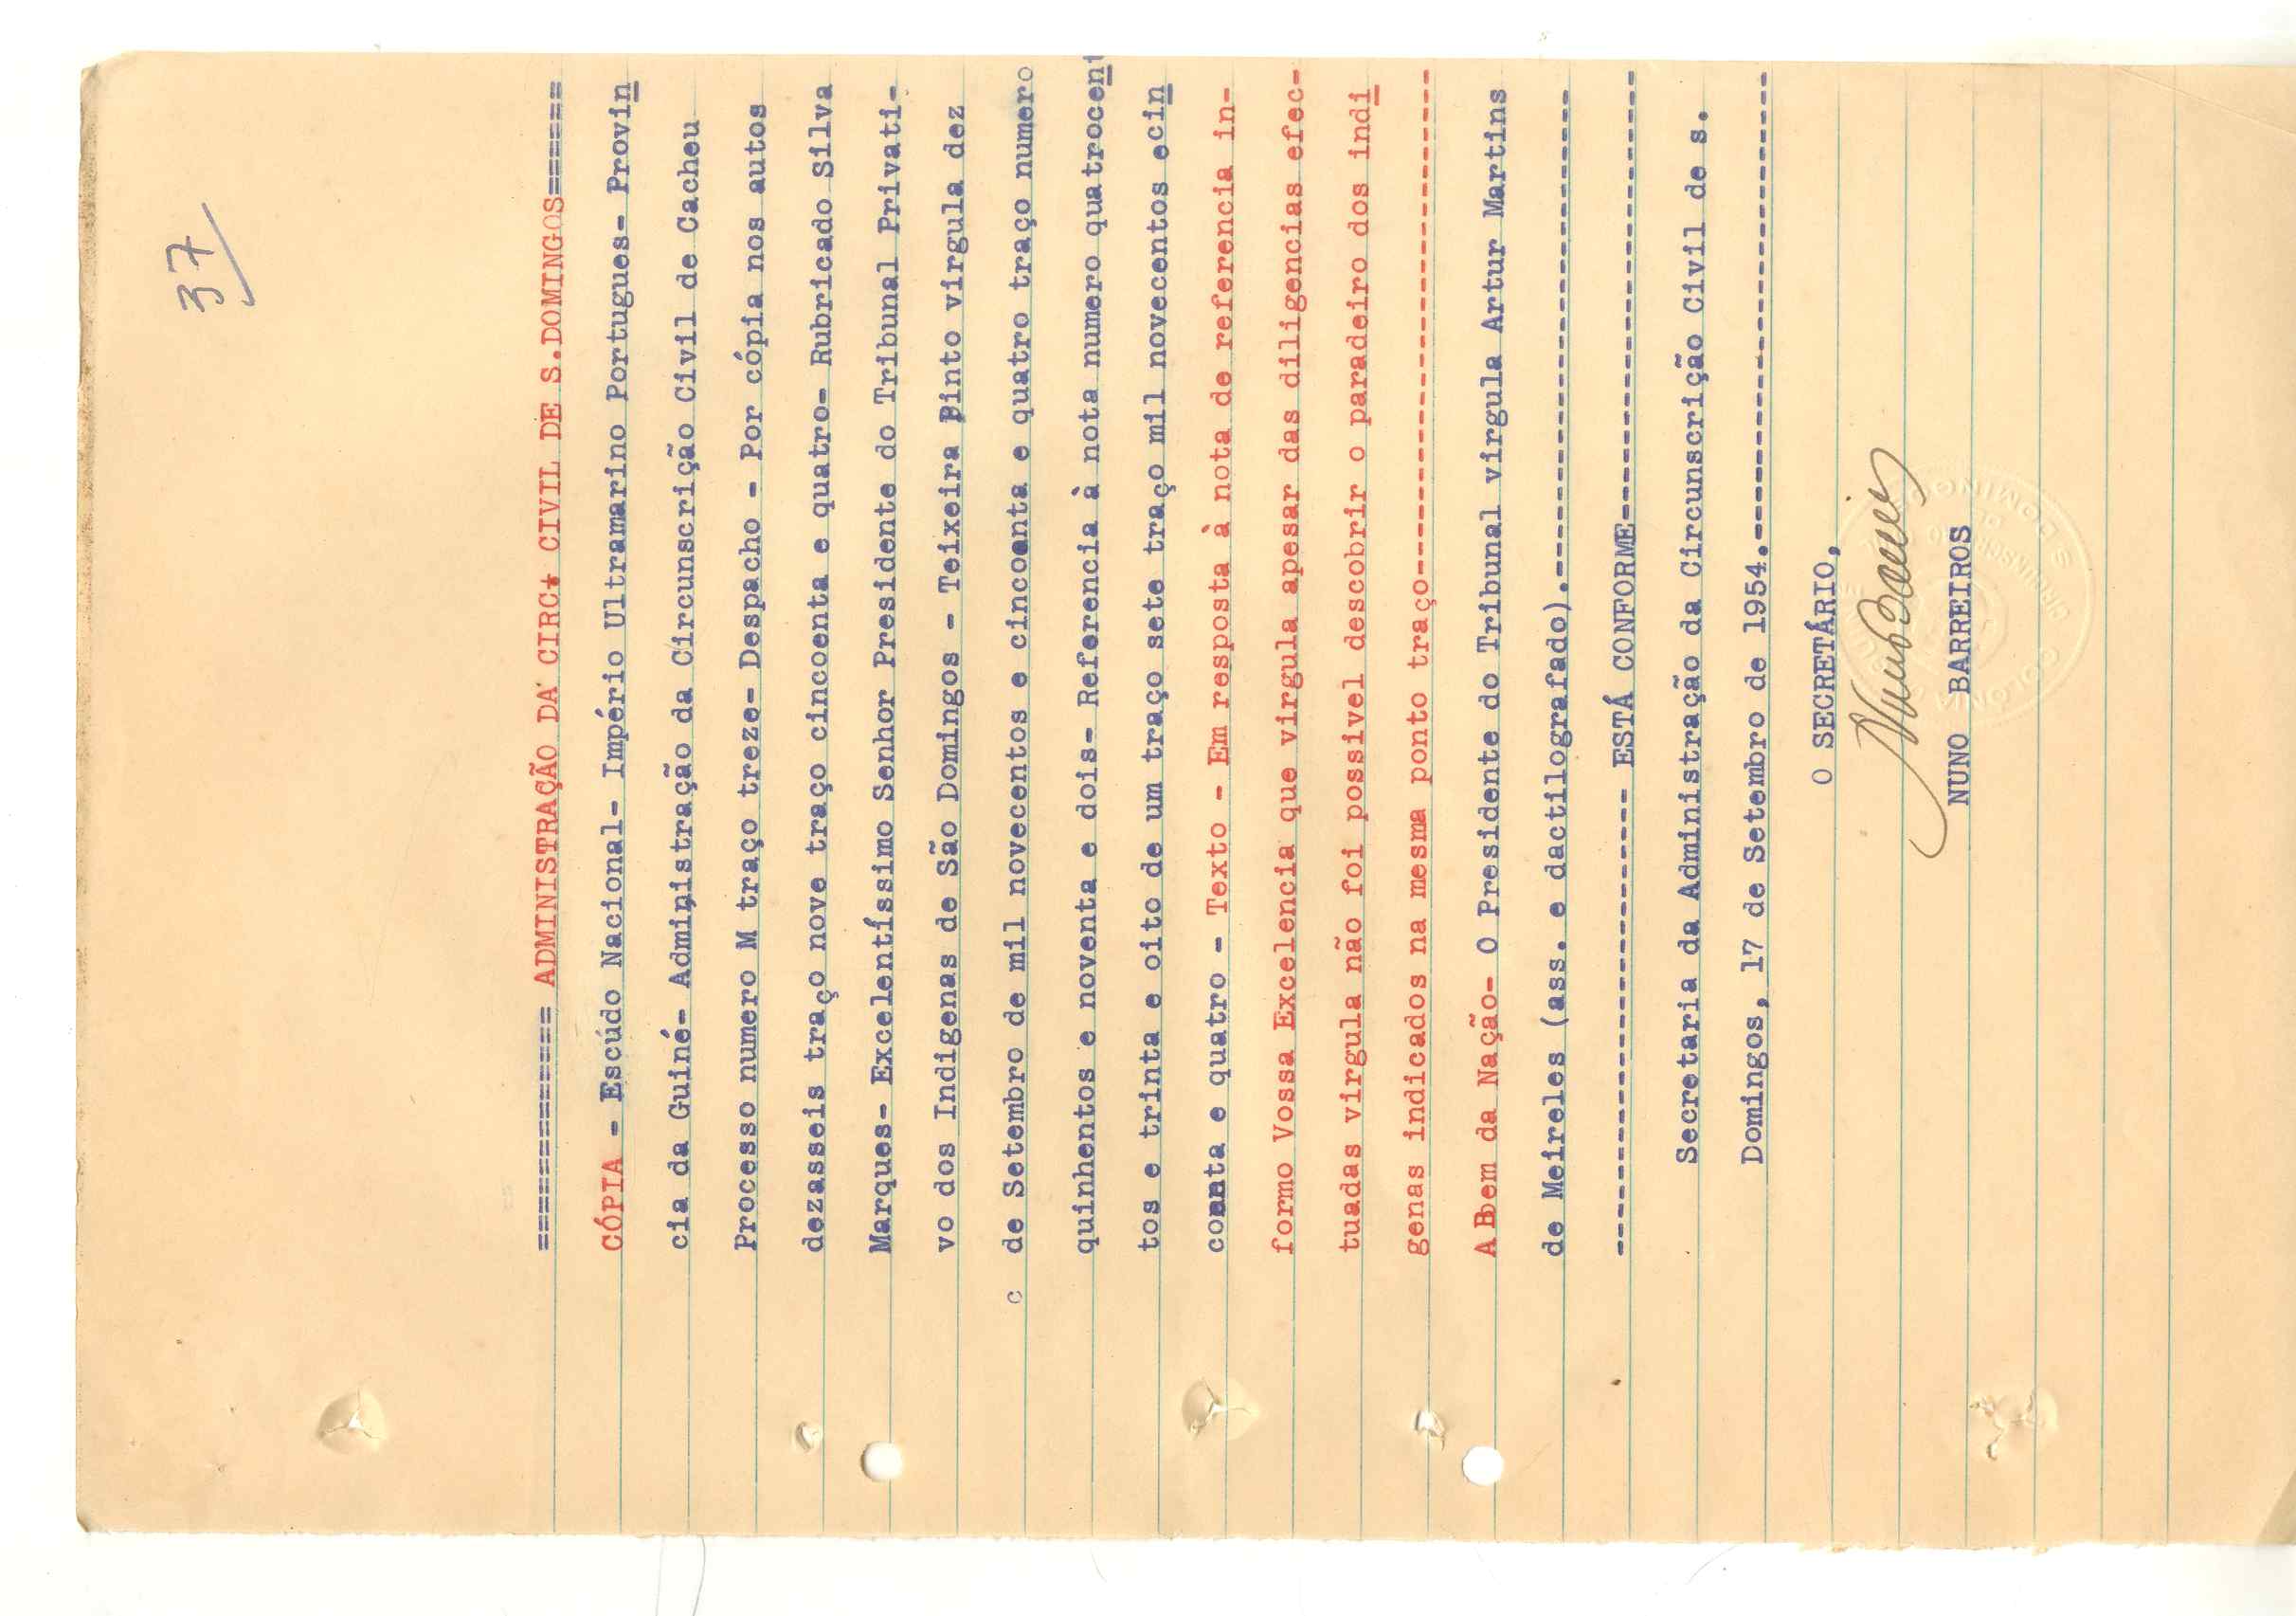 37
============== ADMINISTRAÇÃO DA CIRC+ CIVIL DE S.DOMINGOS=======
CÓPIA - Escúdo Nacional- Império Ultramarino Portugues- Provin
cia da Guiné- Administração da Circunscrição Civil de Cacheu
Processo numero M traço treze- Despacho - Por cópia nos autos
dezasseis traço nove traço cincoenta e quatro- Rubricado Silva
Marques- Excelentíssimo Senhor Presidente do Tribunal Privati-
vo dos Indigenas de São Domingos - Teixeira Pinto virgula dez
c de Setembro de mil novecentos e cincoenta e quatro traço numero
quinhentos e noventa e dois- Referencia à nota numero quatrocent
tos e trinta e oito de um traço sete traço mil novecentos ecin
coenta e quatro - Texto - Em resposta à nota de referencia in-
formo Vossa Excelencia que virgula apesar das diligencias efec-
tuadas virgula não foi possivel descobrir o paradeiro dos indi
genas indicados na mesma ponto traço------------------------------
A Bem da Nação- O Presidente do Tribunal virgula Artur Martins
de Meireles (ass. e dactilografado).------------------------------
------------------------------ ESTÁ CONFORME-----------------------------
Secretaria da Administração da Circunscrição Civil de s.
Domingos, 17 de Setembro de 1954.-----------------------------
O SECRETÁRIO,
Nuno Barreiros
NUNO BARREIROS